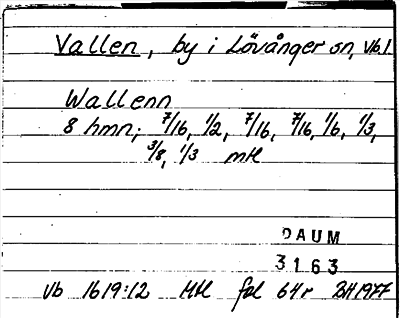 Vallen, by i Lövånger sn, Vb.l
Wallenn
8 hmn; 7/16, 1/2, 7/16, 7/16, 1/6, 1/3,
3/8, 1/3 mtl
DAUM
3163
Vb 1619:12 Mtl fol 64r BH 1977